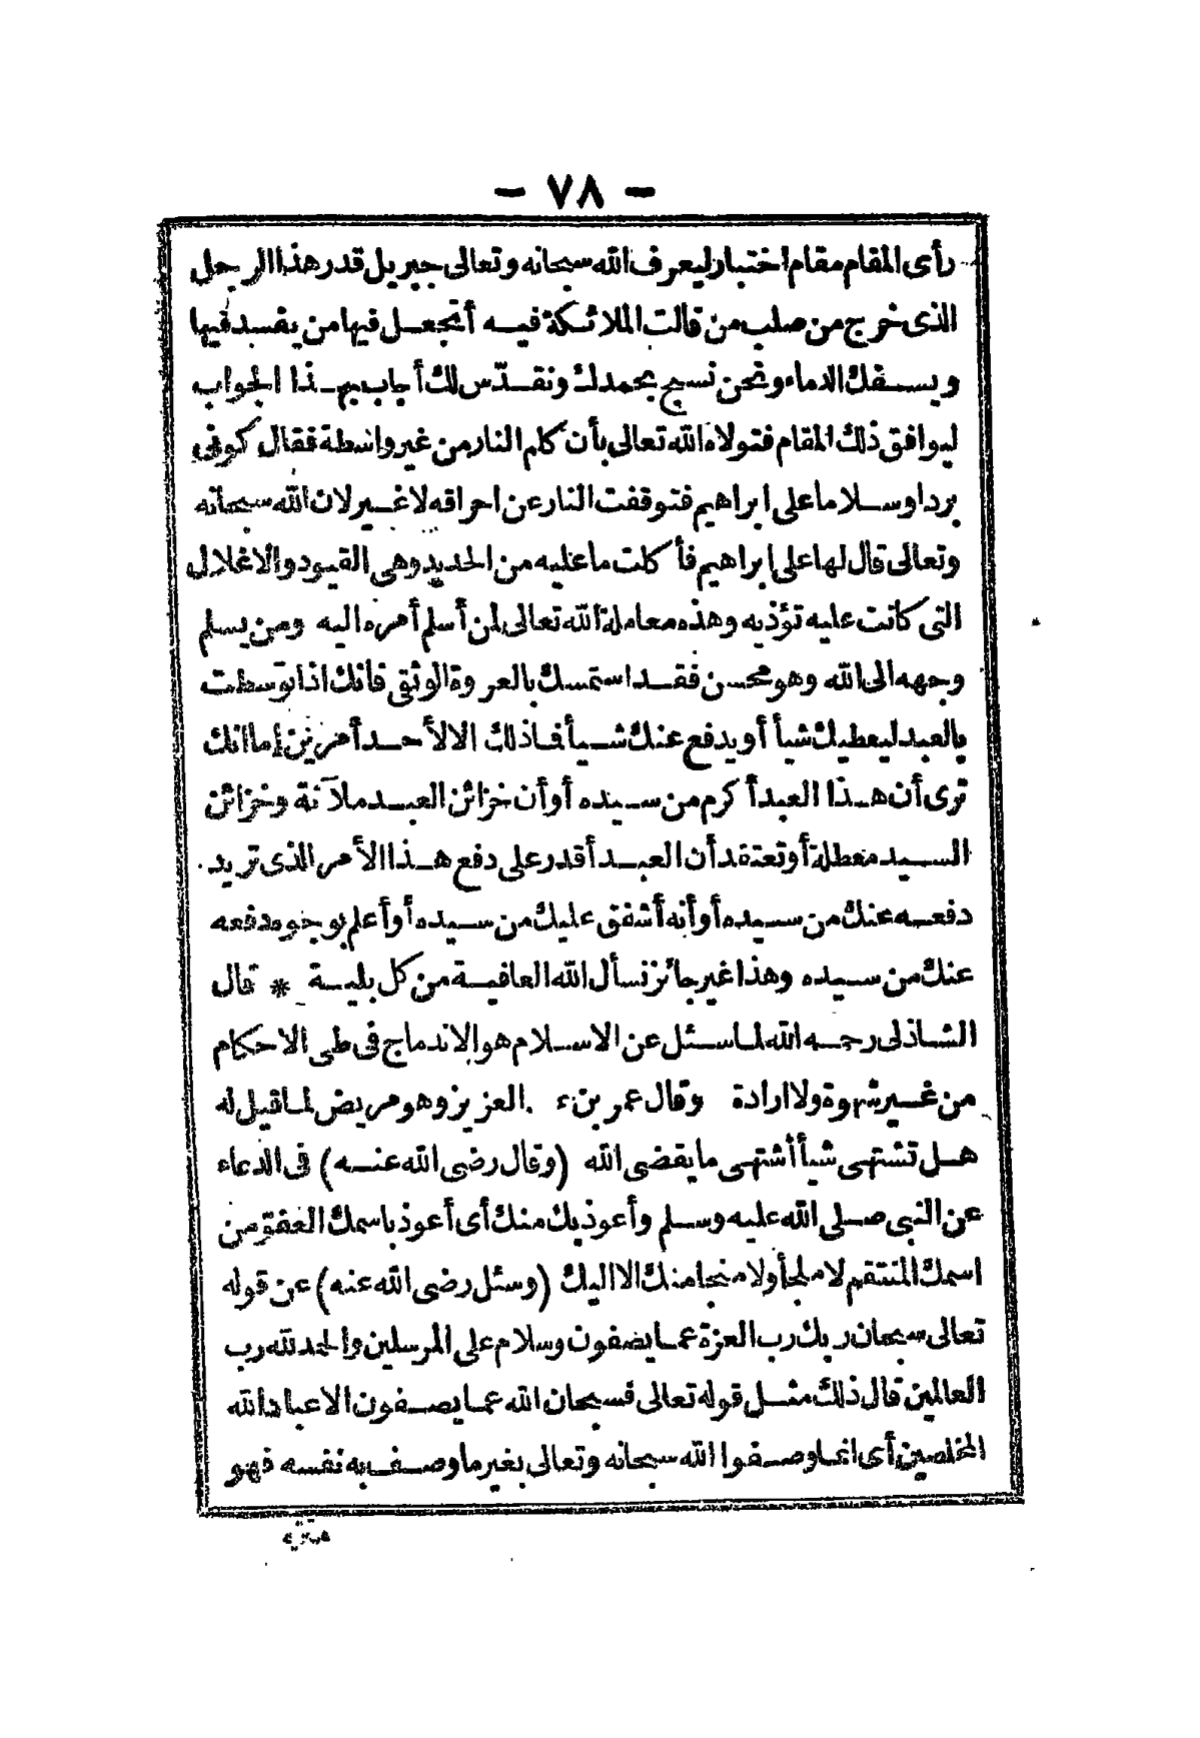 — ٧٨ —
رأى المقام مقام اختبار ليعرف الله سبحانه وتعالى جبريل قدر هذا الرجل
الذى خرج من صلب من قالت الملائكة فيه أتجعل فيها من يفسد فيها
ويسفك الدماء ونحن نسبح بحمدك ونقدّس لك أجاب بهذا الجواب
ليوافق ذلك المقام فتولاه الله تعالى بأن كلم النار من غير واسطة فقال كونى
بردا وسلاما على ابراهيم فتوقفت النار عن احراقه لا غير لان الله سبحانه
وتعالى قال لها على ابراهيم فأكلت ما عليه من الحديد وهى القيود والاغلال
التى كانت عليه تؤذيه وهذه معاملة الله تعالى لمن أسلم أمره اليه ومن يسلم
وجهه الى الله وهو محسن فقد استمسك بالعروة الوثقى فانك اذا توسطت
بالعبد ليعطيك شيأ أو يدفع عنك شيأ فاذلك الا لأحد أمرين إما انك
ترى أن هذا العبد أكرم من سيده أو أن خزائن العبد ملآنة وخزائن
السيد معطلة أو تعتقد أن العبد أقدر على دفع هذا الأمر الذى تريد
دفعه عنك من سيده أو أنه أشفق عليك من سيده أو أعلم بوجوه دفعه
عنك من سيده وهذا غير جائز نسأل الله العافية من كل بلية * قال
الشاذلى رحمه الله لما سئل عن الاسلام هو الاندماج فى طى الاحكام
من غير شهوة ولا ارادة وقال عمر بن ء . العزيز وهو مريض لما قيل له
هل تشتهى شيأ أشتهى ما يقضى الله (وقال رضى الله عنه) فى الدعاء
عن النبى صلى الله عليه وسلم وأعوذ بك منك أى أعوذ باسمك العفوّ من
اسمك المنتقم لا ملجأ ولا منجا منك الا اليك (وسئل رضى الله عنه) عن قوله
تعالى سبحان ربك رب العزة عما يصفون وسلام على المرسلين والحمد لله رب
العالمين قال ذلك مثل قوله تعالى فسبحان الله عما يصفون الا عباد الله
المخلصين أى انما وصفوا الله سبحانه وتعالى بغير ما وصف به نفسه فهو
منزه